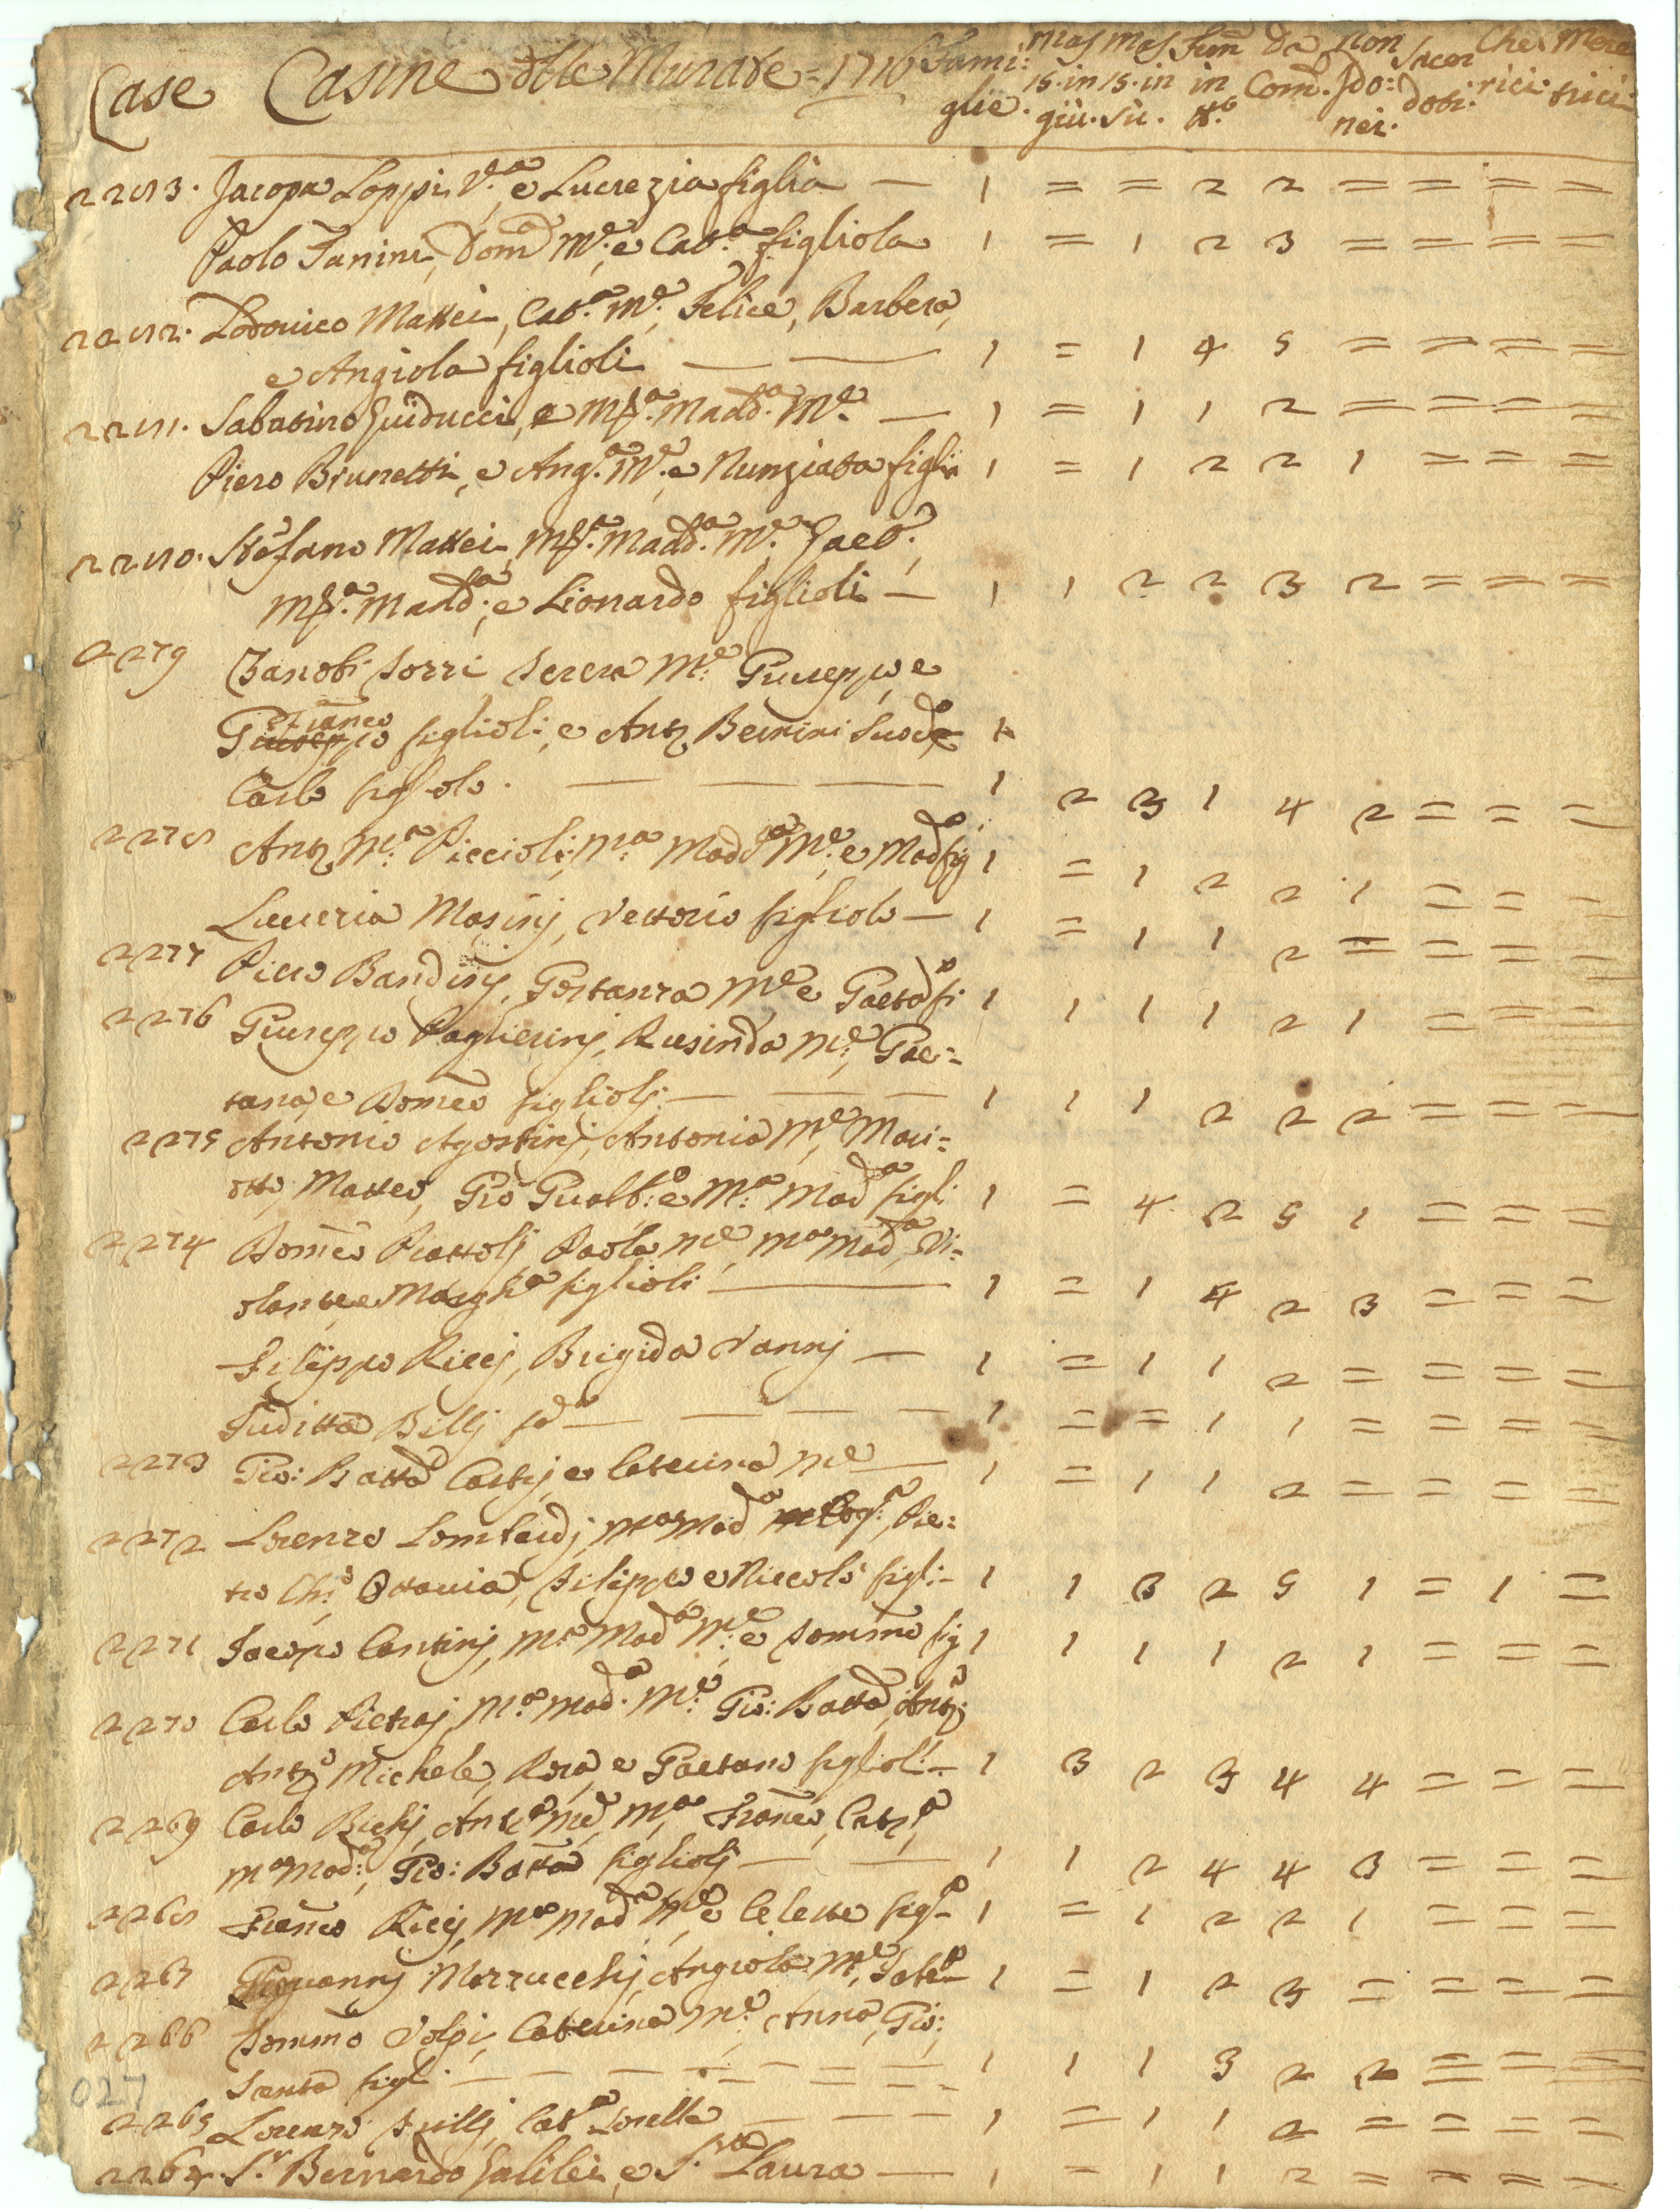 Case Casine delle Murate = 1716 Fami: Mas Mas Fem Da non Sacer Che Mere
glie. 15. in 15. in in Com. Ido: doti. rici: trici
giù. Sù. N.o nei.
2283. Jacopa Loppi V.a, e Lucrezia figlia — 1 = = 2 2 = = = =
Paolo Fanini, Dom.a M.e, e Cat.a figliola 1 = 1 2 3 = = = =
2282. Lodovico Mattei, Cat.a M.e, Felice, Barbera,
e Angiola figlioli — 1 = 1 4 5 = = = =
2281. Sabatino Guiducci, e M.a Madd.a M.e — 1 = 1 1 2 = = = =
Piero Brunetti, e Ang.a M.e, e Nunziata figlia 1 = 1 2 2 1 = = =
2280. Stefano Mattei, M.a Madd.a M.e Gaet.o,
M.a Madd.a, e Lionardo figlioli — 1 1 2 2 3 2 = = =
2279 Zanobi Sorri Terera M.e Giuseppe e
Franco figlioli, e Ant.o Bernini Suod.o 1
Carlo figliolo. — 1 2 3 1 4 2 = = =
2278 Ant.o M.a Piccioli, M.a Madd.a M.e, e Mad.a fig 1 = 1 2 2 1 = = =
Lucreria Masinj, Vettorio figliolo — 1 = 1 1 2 = = = =
2277 Piero Bandinj, Gostanza M.e e Gaet.o fi 1 1 1 1 2 1 = = =
2276 Giuseppe Paglierinj, Rusinda M.e, Gae=
tana, e Domco figliolj — 1 1 1 2 2 2 = = =
2275 Antonio Agostinj, Antonia M.e, Mari=
otto, Matteo, Gio Gualb:o e M.a Mad.a figli 1 = 4 2 5 1 = = =
2274 Domco Piattolj Paola M.e, M.a Mad.a, Vi=
olante e Margh.a figlioli — 1 = 1 4 2 3 = = =
Filippo Riccj, Brigida Vannj — 1 = 1 1 2 = = = =
Giuditta Billj — 1 = = 1 1 = = = =
2273 Gio: Batta Castj, e Caterina M.e — 1 = 1 1 2 = = = =
2272 Lorenzo Lombardj, M.a Mad.a, Pie=
tro Ch.o Ottavia, Filippo e Niccolò figli 1 1 3 2 5 1 = 1 =
2271 Jacopo Cantinj, M.a Mad.a M.e, e Tommo fig 1 1 1 1 2 1 = = =
2270 Carlo Pietraj, M.a Mad.a M.e Gio: Batta, Ant.a
Ant.o Michele, Rosa, e Gaetano figlioli — 1 3 2 3 4 4 = = =
2269 Carlo Bichj, Ant.a M.e, M.a, Franco, Cat.a,
M.a Mad.a, Gio: Batta figliolj — 1 1 2 4 4 3 = = =
2268 Franco Riccj, M.a Mad.a M.e e Celeste fig.a 1 = 1 2 2 1 = = =
2267 Giovannj Marrucchj, Angiola M.e, 1 = 1 2 3 = = = =
2266 Tommo Volpi, Caterina M.e, Anna, Gio:
Santa figli — 1 1 1 3 2 2 = = =
2265 Lorenzo Cat.a Sorella — 1 = 1 1 2 = = = =
2264. S.r Bernardo Galilei, e S.ra Laura — 1 = 1 1 2 = = = =
027